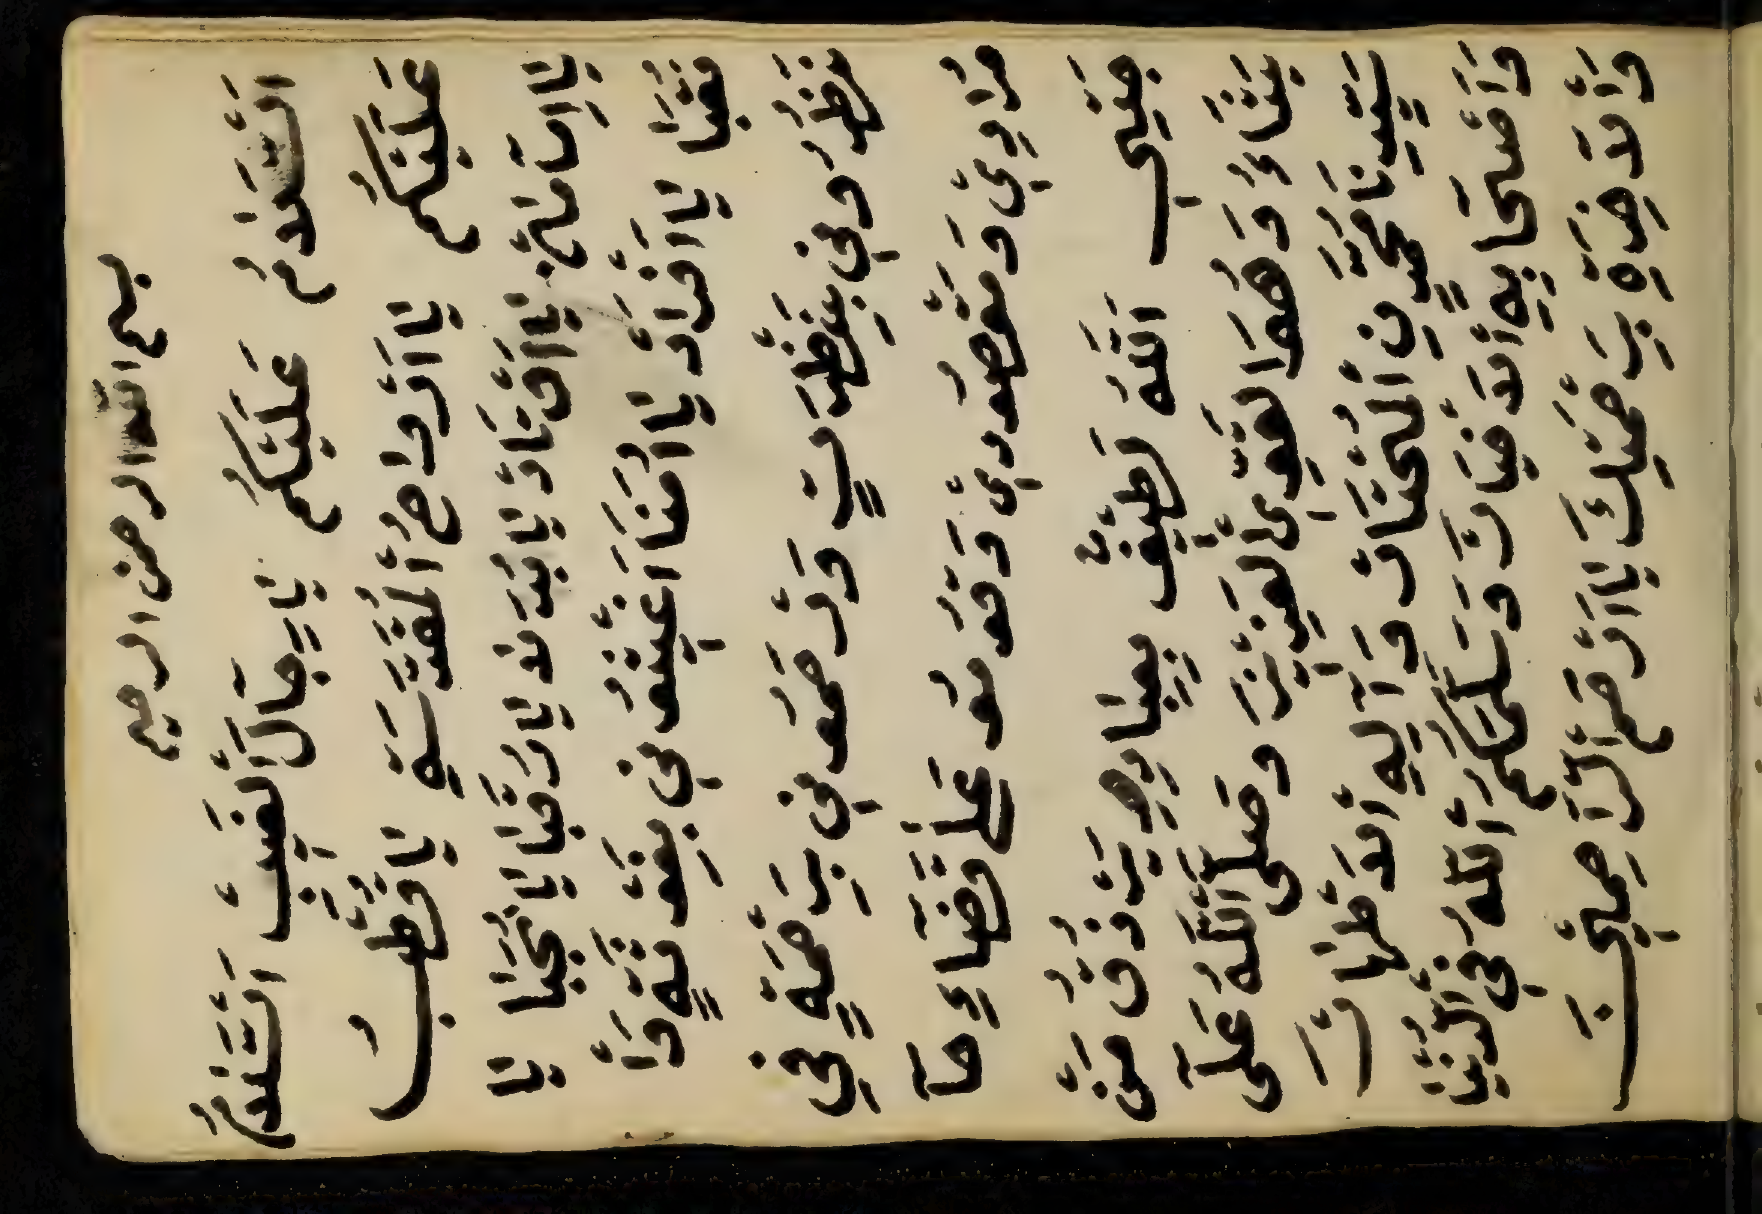 بسم الله الرحمن الرحيم
اَلسَّلَامُ عَلَيْكُمْ يَارِجَالَ اَلْغَيْبِ اَلسَّلَامُ
عَلَيْكُمْ يَااَرْوَاحُ اَلْمُقَدَّسَةِ يَاقُطْبُ
يَااِمَامَانِ يَااَوْتَادُ يَابُدَلَاءُ يَارُقَبَا يَانُجَبَا يَا
نُقَبَا يَااَفْرَادُ يَااُمَنَا اَغِيْثُونِي بِغَوْثَةٍ وَا
نْظُرُونِي بِنَظْرَةٍ وَارْحَمُونِي بِرَحْمَةٍ فِي
مُرَادِي وَمَقْصُودِي وَقُومُو عَلَى قَضَاءِ حَا
جَتِي اَللهُ لَطِيْفٌ بِعِبَادِهِ يَرْزُقُ مَنْ
يَشَاءُ وَهُوَ الْقَوِيُّ الْعَزِيْزُ وَصَلَّى اَللهُ عَلَى
سَيِّدِنَا مُحَمَّدٍ نِ اَلْمُخْتَارْ وَآلِهِ اَلْاَطْهَارْ
وَاَصْحَابِهِ اَلْاَخْيَارْ وَسَلَّمَكُمُ اَللهُ فِي اَلدُّنْيَا
وَاَلْآخِرَةِ بِرَحْمَتِكَ يَااَرْحَمَ اَلرَّاحِمِيْنَ